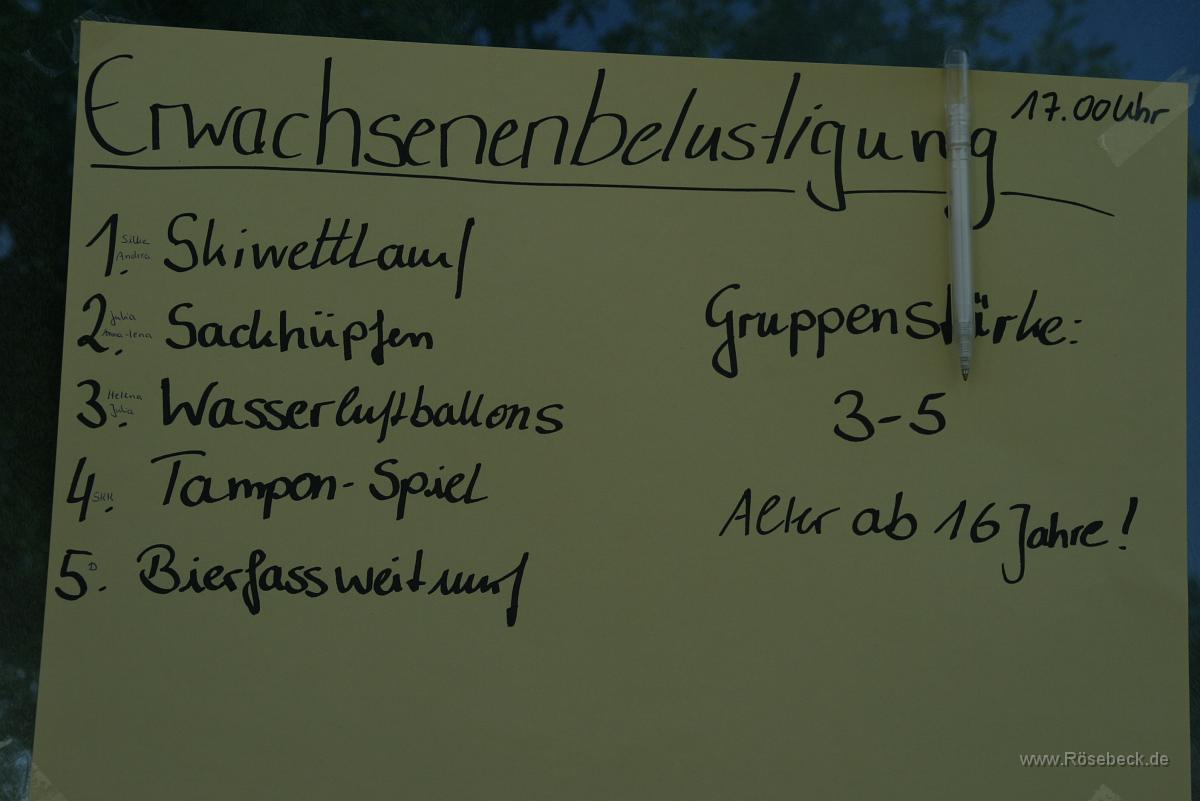 Erwachsenenbelustigung 17.00 Uhr
1. Silke Andrea Skiwettlauf
2. Julia Anna-lena Sackhüpfen
3. Helena Julia Wasserluftballons
4. SKH Tampon-Spiel
5. D Bierfassweitwurf
Gruppenstärke:
3-5
Alter ab 16 Jahre!
www.Rösebeck.de